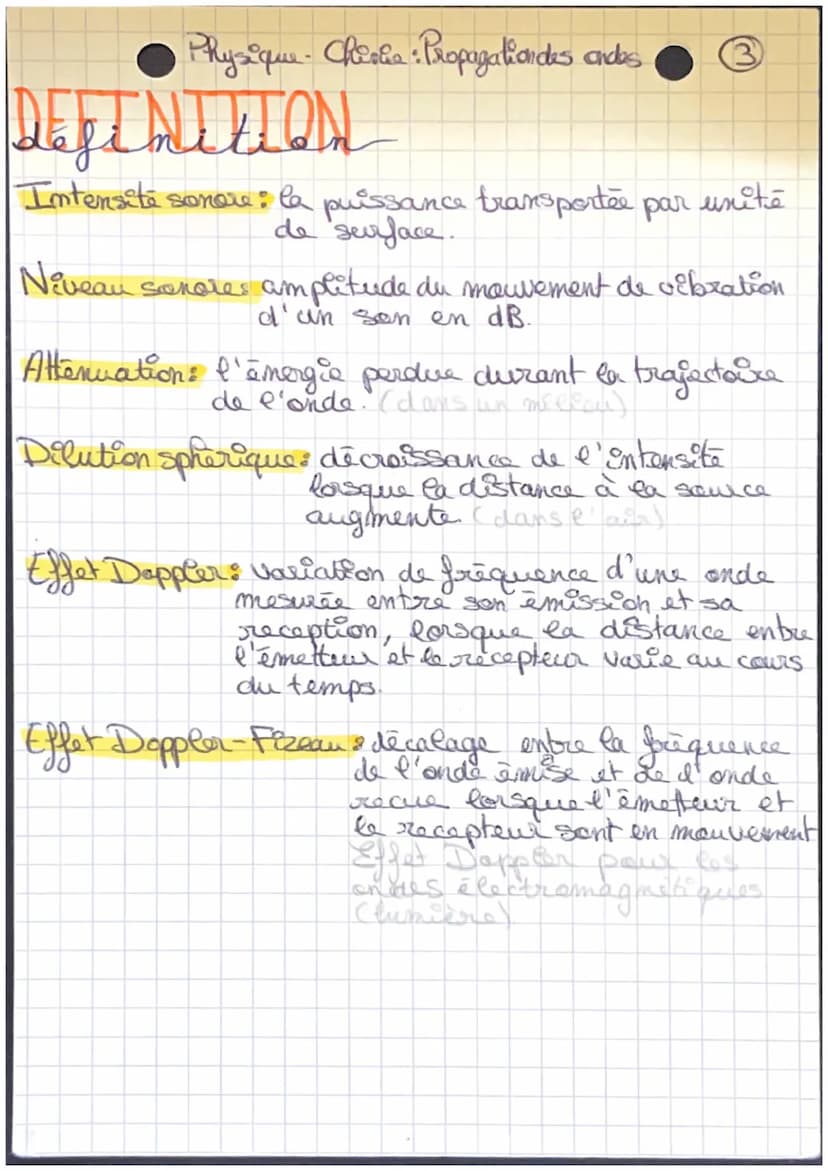 Physique-Chimie : Propagation des ondes ③
DEFINITION
définition
Intensité sonore : la puissance transportée par unité
de surface.
Niveau sonore : amplitude du mouvement de vibration
d'un son en dB.
Atténuation : l'énergie perdue durant la trajectoire
de l'onde. (dans un milieu)
Dilution spherique : décroissance de l'intensité
lorsque la distance à la source
augmente. (dans l'air)
Effet Doppler : variation de fréquence d'une onde
mesurée entre son émission et sa
reception, lorsque la distance entre
l'émetteur et le récepteur varie au cours
du temps.
Effet Doppler-Fizeau : décalage entre la fréquence
de l'onde émise et de l'onde
recue lorsque l'émetteur et
le recepteur sont en mouvement
Effet Doppler pour les
ondes électromagnétiques
(lumière)